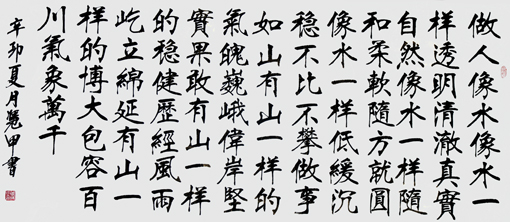 做人像水像水一
樣透明清澈真實
自然像水一樣隨
和柔軟隨方就圓
像水一樣低緩沉
穩不比不攀做事
如山有山一樣的
氣魄巍峨偉岸堅
實果敢有山一樣
的穩健歷經風雨
屹立綿延有山一
樣的博大包容百
川氣象萬千
辛卯夏月甲書